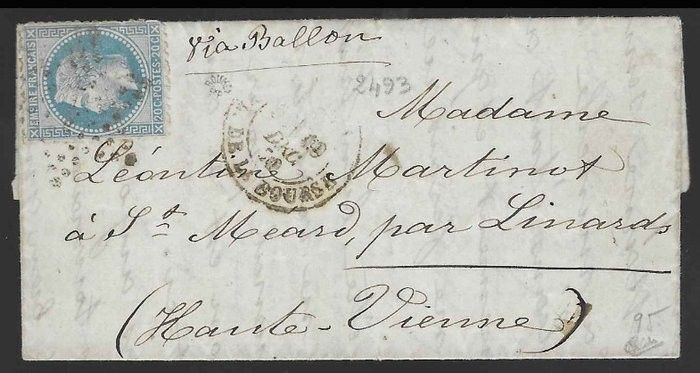 Via Ballon
2493
EMPIRE FRANÇAIS
20 C · POSTES · 20 C
DE LA BOURSE
DEC
Madame
Léontine Martinot
à St. Meard, par Linards
(Haute-Vienne)
95